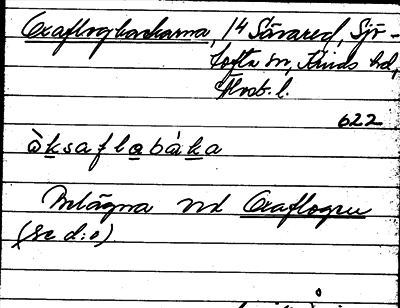 Oxaflogbackarna, 14 Sävared, Sjö-
tofta sn, Kinds hd,
Älvsb. l.
622
òksaflɵbàka
Belägna vid Oxaflogen
(se d:o).